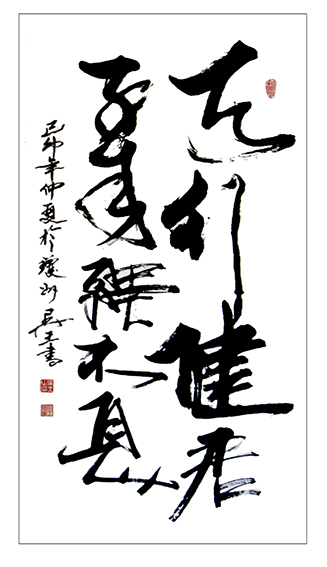 天行健君
子自強不息
己卯年仲夏於瓊州吳書